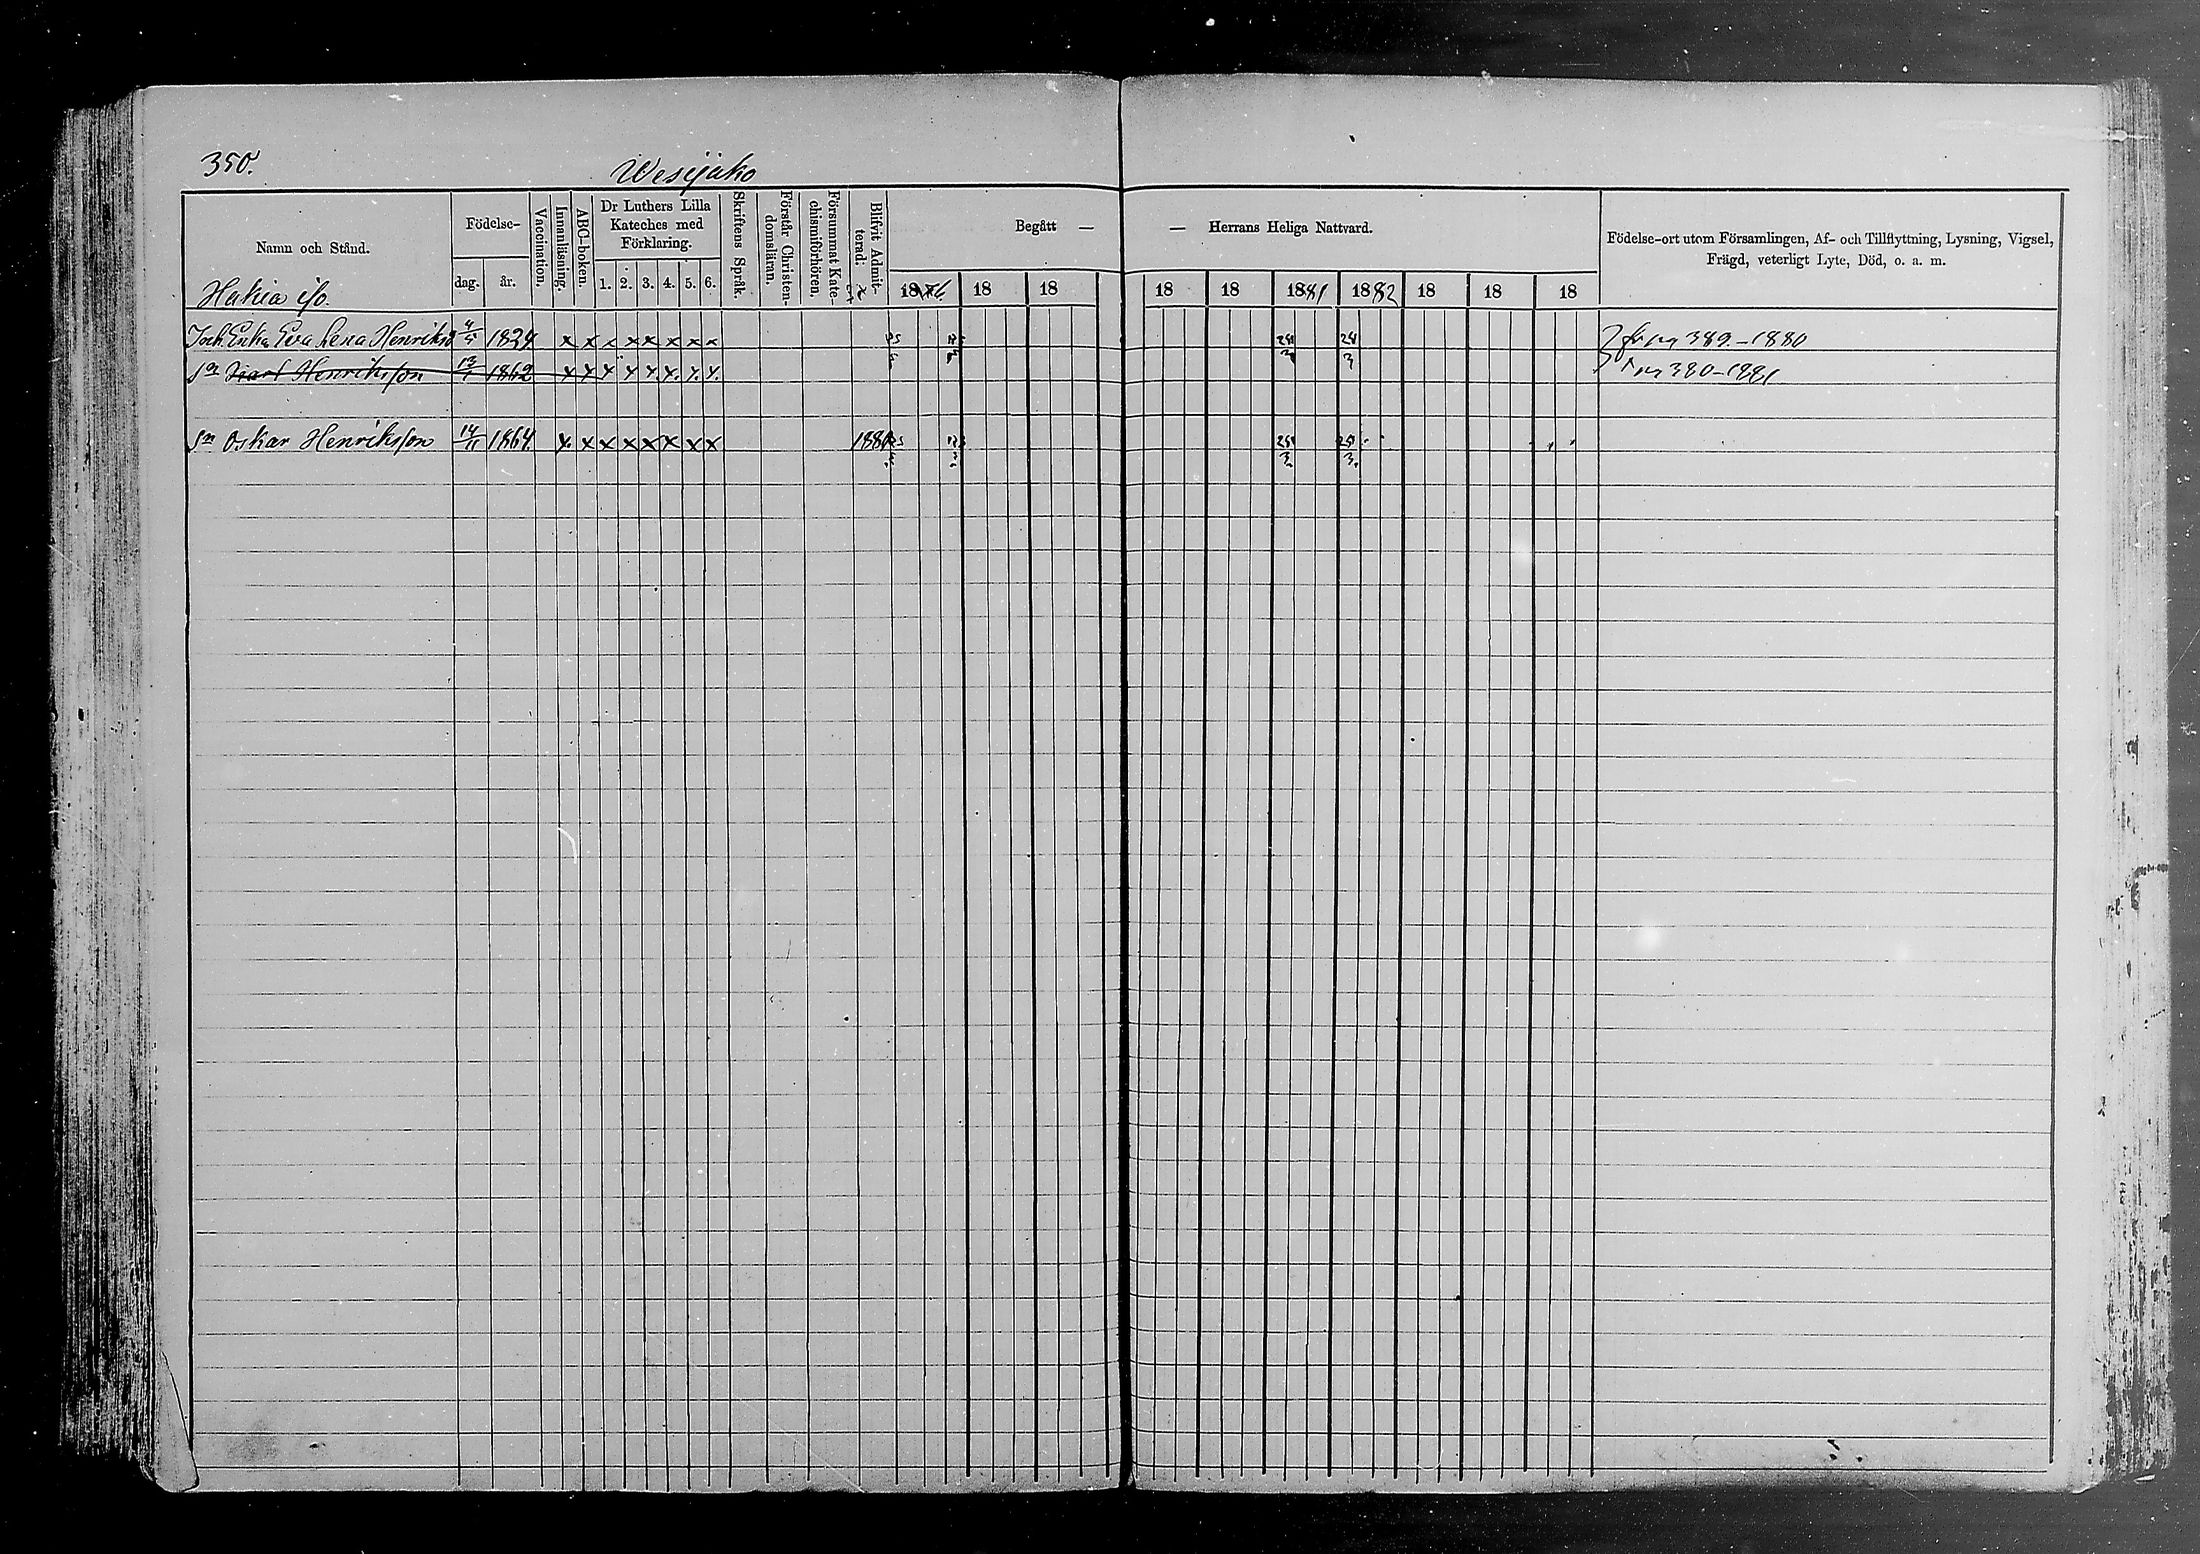 350.
Wesijako
Namn och Stånd.
Födelse-
dag.
år.
Vaccination.
Innanläsning.
ABC-boken.
Dr Luthers Lilla
Kateches med
Förklaring.
1. 2. 3. 4. 5. 6.
Skriftens Språk.
Förstår Christen-
domsläran.
Försummat Kate-
chismiförhören.
Blifvit Admit-
terad;
Begått —
— Herrans Heliga Nattvard.
Födelse-ort utom Församlingen, Af- och Tillflyttning, Lysning, Vigsel,
Frägd, veterligt Lyte, Död, o. a. m.
18 18 18 18 18 1881 1882 18 18 18
Hakia
Enka Eva Lena Henriksd 4/5 1824 x x x x x x x x 25 3 24 3 389.-1880
Sn Henriksson 13/1 1862 x x x x x x x x 380-1881
Sn Oskar Henriksson 14/11 1864. x x x x x x x x 1880 25 3 25 3